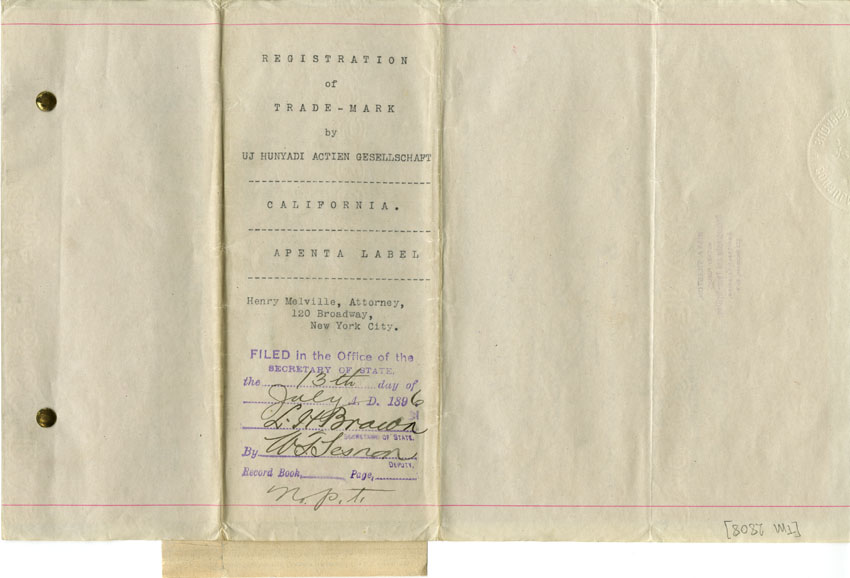 REGISTRATION
of
TRADE-MARK
by
UJ HUNYADI ACTIEN GESELLSCHAFT
CALIFORNIA.
APENTA LABEL
Henry Melville, Attorney,
120 Broadway,
New York City.
FILED in the Office of the
SECRETARY OF STATE,
the 13th day of
July A. D. 1896
L. H. Brown
SECRETARY OF STATE.
By W. T. Sesnon
DEPUTY.
Record Book, Page,
N. P. t.
[TM 2808]